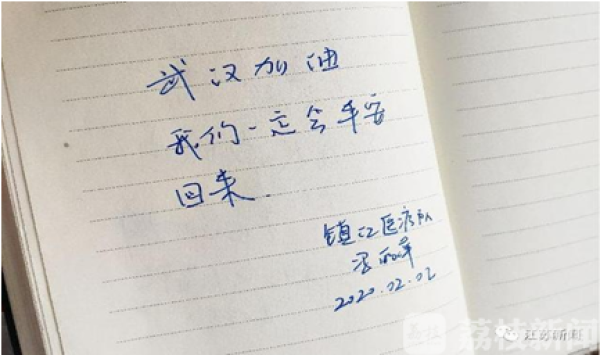 武汉加油
我们一定会平安
回来.
镇江医疗队
2020.02.02
荔枝新闻
江苏新闻